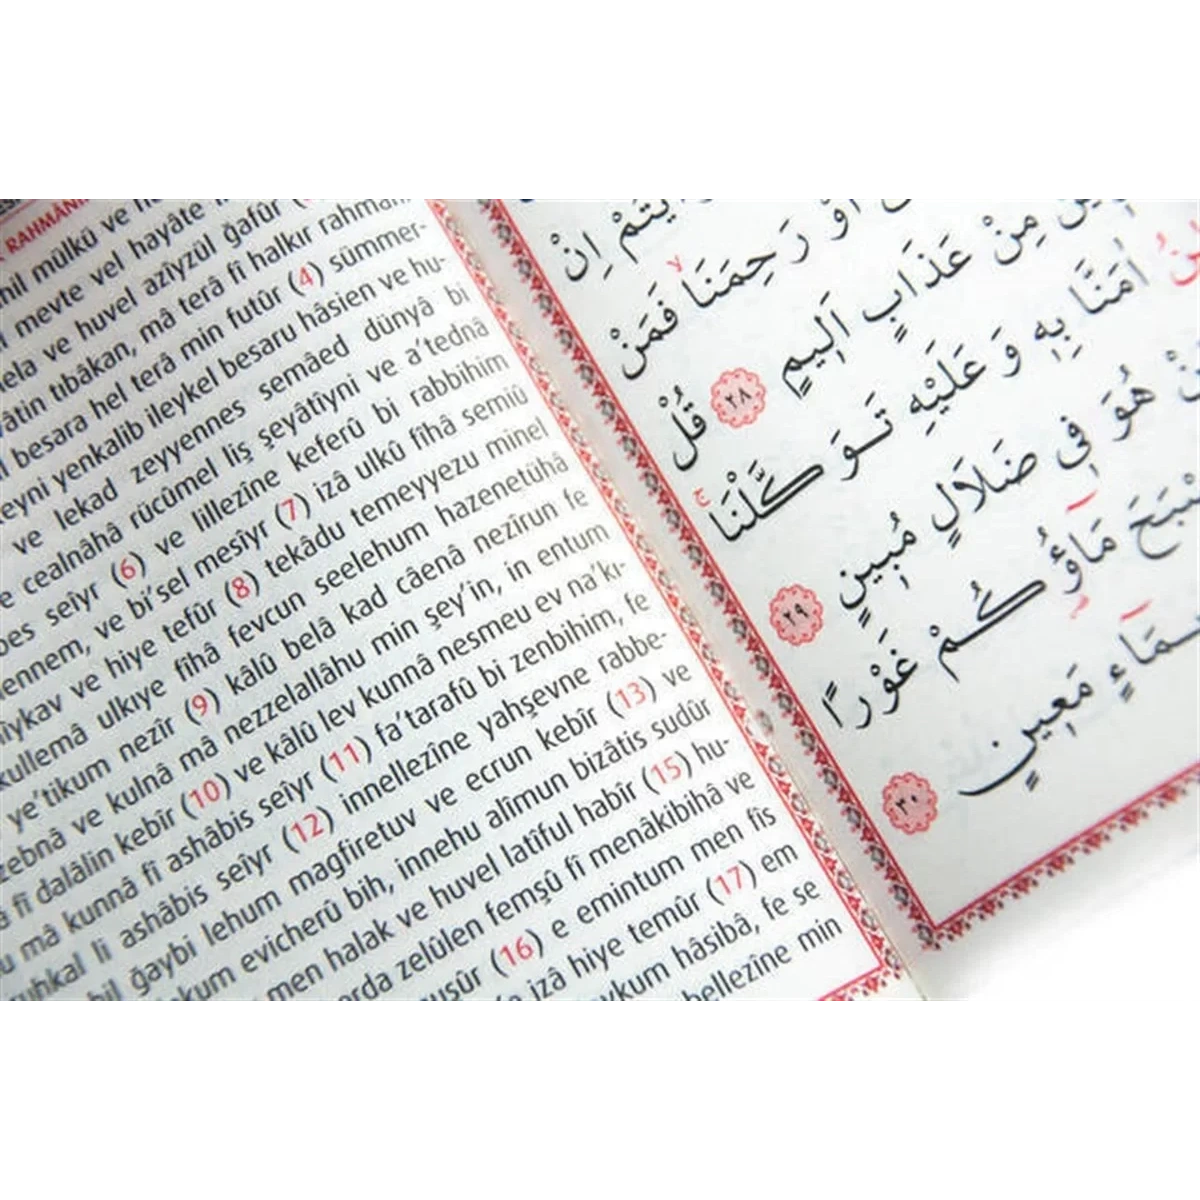 RAHMÂNİ
mülkü ve
mevte vel hayâte
ve huvel azîyzül ğafûr
tıbâkan, mâ terâ fî halkır rahmâni
besara hel terâ min futûr (4) sümmer-
yenkalib ileykel besaru hâsien ve hu-
ve lekad zeyyennes semâed dünyâ bi
cealnâhâ rücûmel liş şeyâtîyni ve a'tednâ
seîyr (6) ve lillezîne keferû bi rabbihim
ve bi'sel mesîyr (7) izâ ulkû fîhâ semiû
ve hiye tefûr (8) tekâdu temeyyezu minel
ulkıye fîhâ fevcun seelehum hazenetühâ
ye'tikum nezîr (9) kâlû belâ kad câenâ nezîrun fe
ve kulnâ mâ nezzelallâhu min şey'in, in entum
fî dalâlin kebîr (10) ve kâlû lev kunnâ nesmeu ev na'kı-
mâ kunnâ fî ashâbis seîyr (11) fa'tarafû bi zenbihim, fe
li ashâbis seîyr (12) innellezîne yahşevne rabbe-
ğaybi lehum magfiretuv ve ecrun kebîr (13) ve
evicherû bih, innehu alîmun bizâtis sudûr
men halak ve huvel latîful habîr (15) hu-
zelûlen femşû fî menâkibihâ ve
(16) e emintum men fîs
izâ hiye temûr (17) em
hâsibâ, fe se
min
اِنْ
اَوْ رَحِمَنَا فَمَنْ
مِنْ عَذَابٍ اَلِيمٍ ٢٨ قُلْ
اٰمَنَّا بِهِ وَعَلَيْهِ تَوَكَّلْنَا
هُوَ فِى ضَلَالٍ مُبِينٍ ٢٩
مَاؤُكُمْ غَوْرًا
مَعِينٍ ٣٠